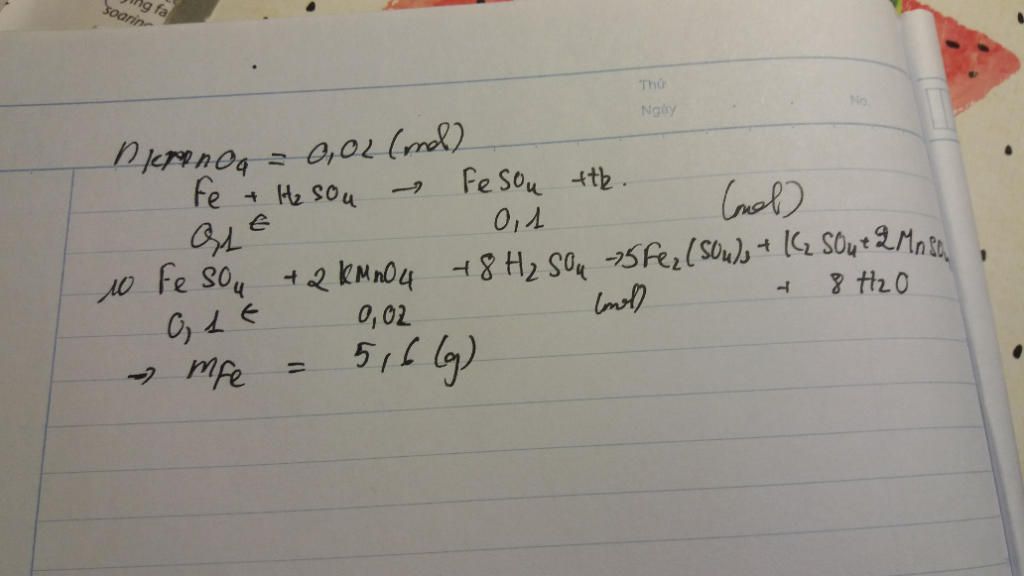 ying fa
soaring
Thứ
Ngày
No.
nKMnO4 = 0,02 (mol)
Fe + H2SO4 → FeSO4 + H2.
0,1 ← 0,1 (mol)
10 FeSO4 + 2 KMnO4 + 8 H2SO4 → 5Fe2(SO4)3 + K2SO4 + 2MnSO4
+ 8 H2O
0,1 ← 0,02 (mol)
→ mFe = 5,6 (g)